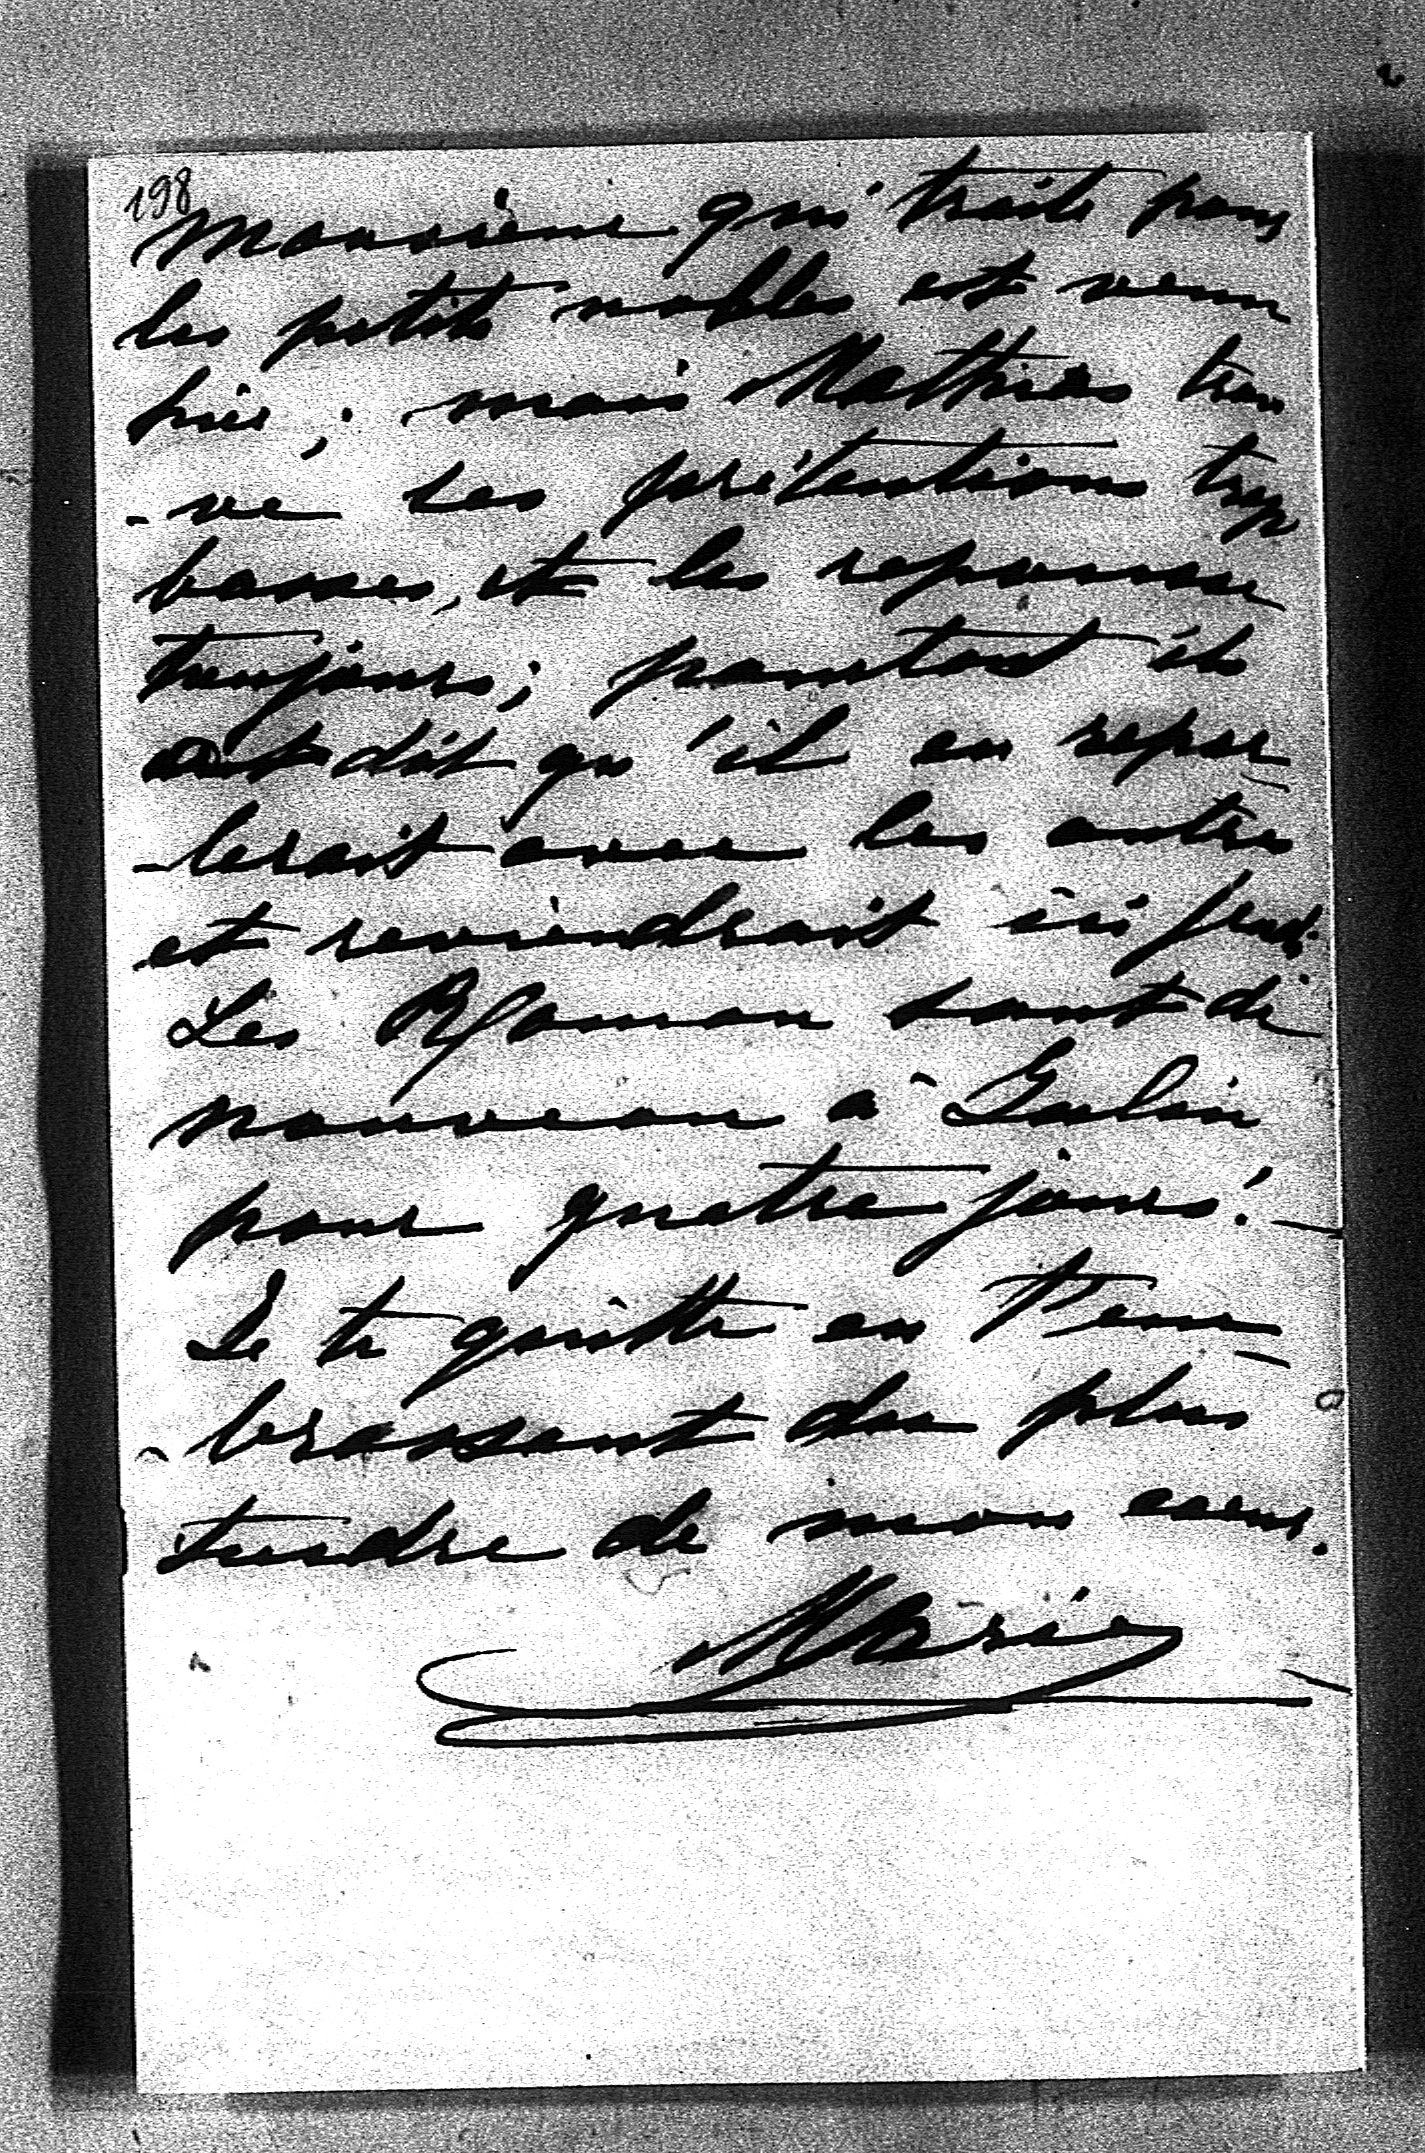 198
Monsieur qui traite pour
les petits nobles est venu
hier; mais Mathias trou
-ve ses prétentions trop
basses, et les repousse
toujours; pourtant ils
ont dit qu'il en repar-
-lerait avec les autres
et reviendrait ici jeudi.
Les sont de
nouveau à
pour quatre jours! —
Je te quitte en t'em-
-brassant du plus
tendre de mon coeur.
Marie